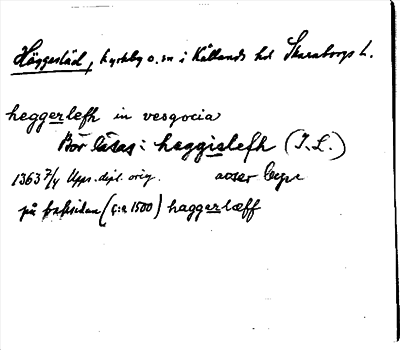 Häggesläd, kyrkby o. sn i Kållands hd Skaraborgs l.
heggerlefh in vesgocia
Bör läsas: heggislefh (I.L.)
1363 7/4 Upps. dipl. orig.
på fraksidan (c:a 1500) haggerlæff